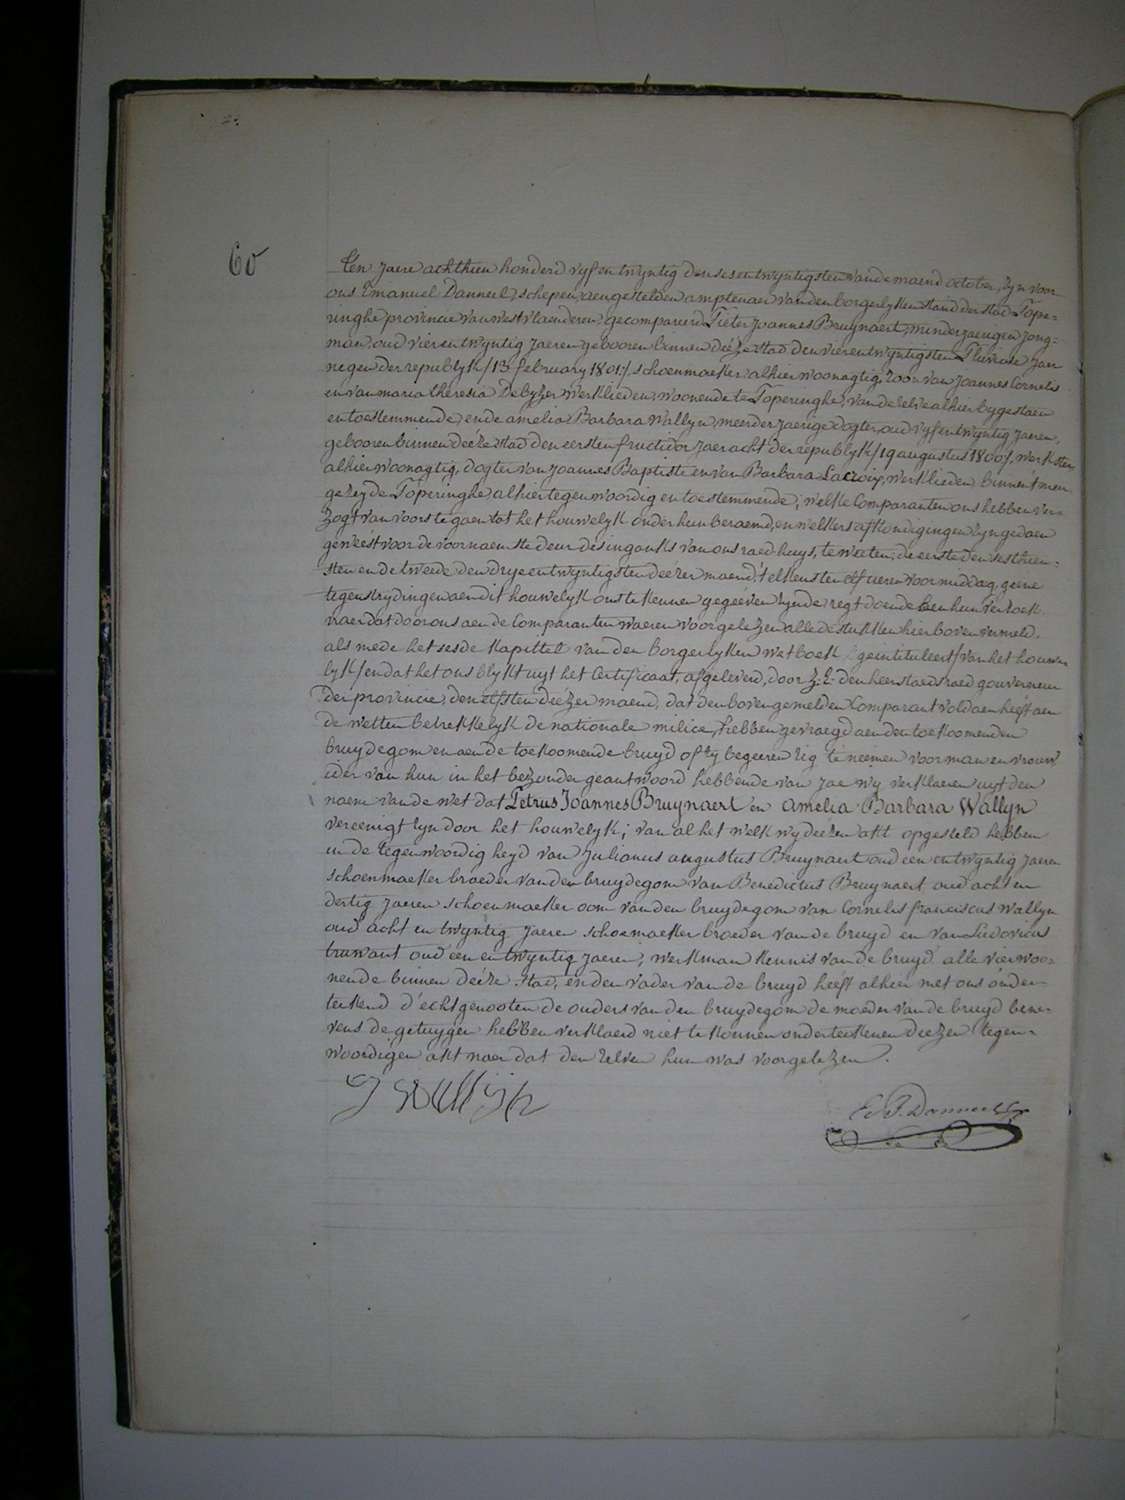 60
Ten jaere achthien honderd vyf en twyntig den ses en twyntigsten van de maend october, zyn voor
ons Emanuel Danneel, schepen, aengestelden amptenaer van den borgerlyken stand der stad Pope-
ringhe provincie van westvlaenderen, gecompareerd Pieter Joannes Bruynaert, minderjaerigen jong-
man, oud vier en twyntig jaeren gebooren binnen dieze stad den vier en twyntigsten Pluviose jaer
negen der republyk /13 february 1801:/ schoenmaeker alhier woonagtig, zoon van Joannes Cornelis
en van maria theresia Debyzer werklieden, woonende te Poperinghe, van de zelve alhier bygestaen
en toestemmende, ende amelia Barbara Wallyn, meerderjaerige dogter, oud vyf en twyntig jaeren,
gebooren binnen deeze stad den eersten fructidor jaer acht der republyk /19 augustus 1800/, werkster
alhier woonagtig, dogter van Joannes Baptiste en van Barbara Lacroix, werklieden binnen 't men
gezeyde Poperinghe, alhier tegenwoordig en toestemmende; welke Comparanten ons hebben ver-
zogt van voors te gaen tot het houwelyk onder hun beraemd, en welkers afkondigingen zyn gedaen
geweest voor de voornaemste deur des ingangs van ons raedhuys, te weeten, de eerste den sesthien-
sten en de tweede den drye en twyntigsten deezer maend, t'elkens ten elf ueren voormiddag, geene
tegenstrydingen aen dit houwelyk ons te kennen gegeeven zynde, regt doende aen hun verzoek
naer dat door ons aen de Comparanten waeren voorgelezen alle de stukken hier boven vermeld,
als mede het sesde kapittel van den borgerlyken wetboek geintituleert / van het houwe
lyk / en dat het ons blykt uyt het Certificaat, afgeleverd, door Z: E: den heer staedsraed gouverneur
der provincie, den elfsten diezer maend, dat den bovengemelden Comparant voldaen heeft aen
de wetten betrekkelyk de nationale milice, hebben gevraegd aen den toekoomenden
bruydegom en aen de toekoomende bruyd of zy begeeren zig te neemen voor man en vrouw
ider van hun in het bezonder geantwoord hebbende van jae wy verklaeren uyt den
naem van de wet dat Petrus Joannes Bruynaert en Amelia Barbara Wallyn
vereenigt zyn door het houwelyk; van al het welk wy diezen akt opgesteld hebben
in de tegenwoordigheyd van Julianus augustus Bruynaert oud een en twyntig jaeren
schoenmaeker broeder van den bruydegom van Benedictus Bruynaert oud acht en
dertig jaeren schoenmaeker oom van den bruydegom van Cornelis franciscus Wallyn
oud acht en twyntig jaere schoemaeker broeder van de bruyd en van Ludovicus
truwant oud een en twyntig jaeren, werkman kennis van de bruyd alle vier woo-
nende binnen dieze stad, en den vader van de bruyd heeft alhier met ons onder-
tekend d'echtgenooten de ouders van den bruydegom de moeder van de bruyd bene-
vens de getuygen hebben verklaerd niet te konnen onderteekenen diezen tegen-
woordigen akt naer dat den zelven hun was voorgelezen.
E. P. Danneel